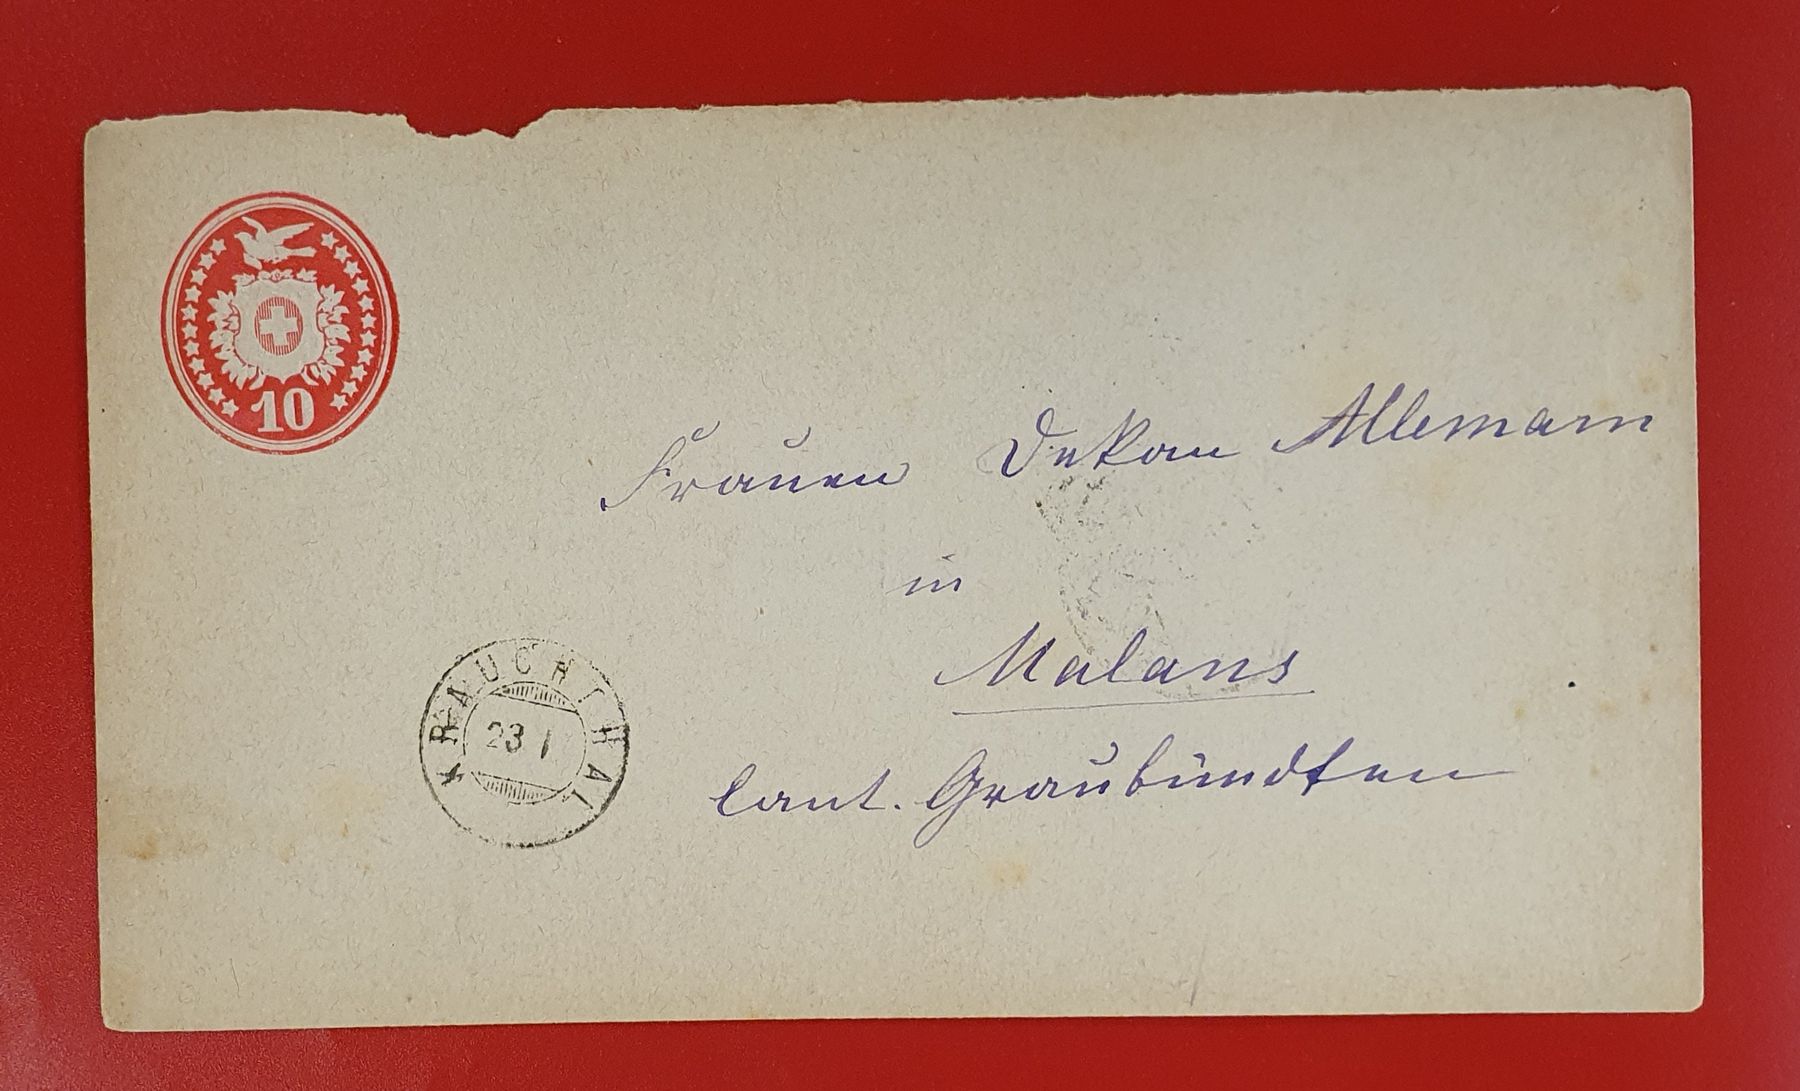 10
Frauen Dekan Allemann
in
Malans
Cant. Graubündten
KRAUCHTHAL
23 I